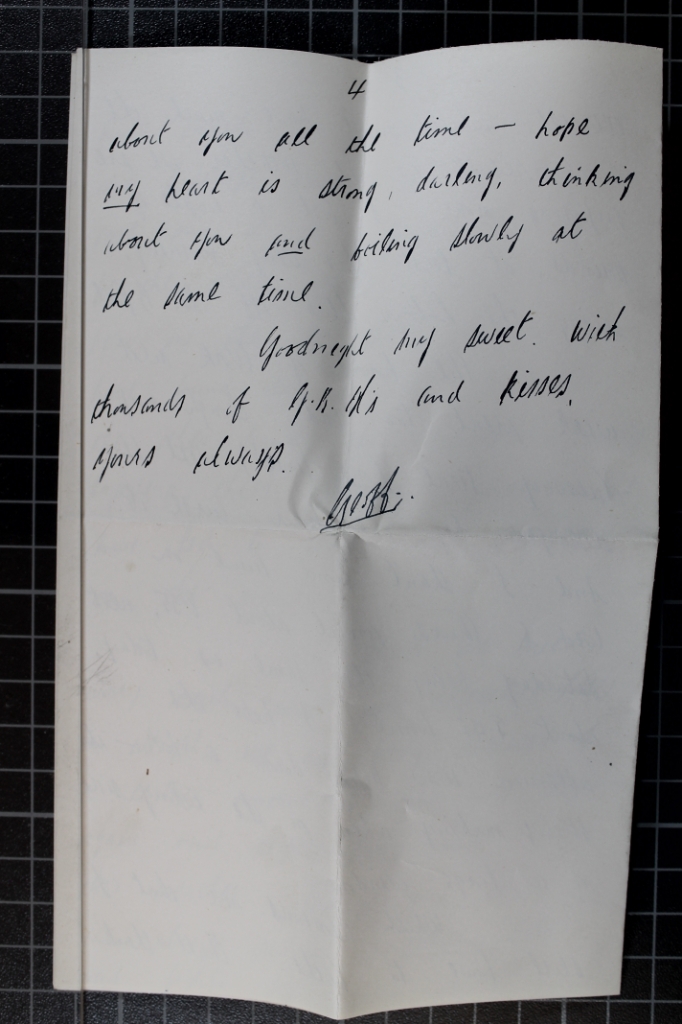 4
about you all the time – hope
my heart is strong, darling, thinking
about you and boiling slowly at
the same time.
Goodnight my sweet. with
thousands of G.B.H's and kisses.
yours always.
Geoff.